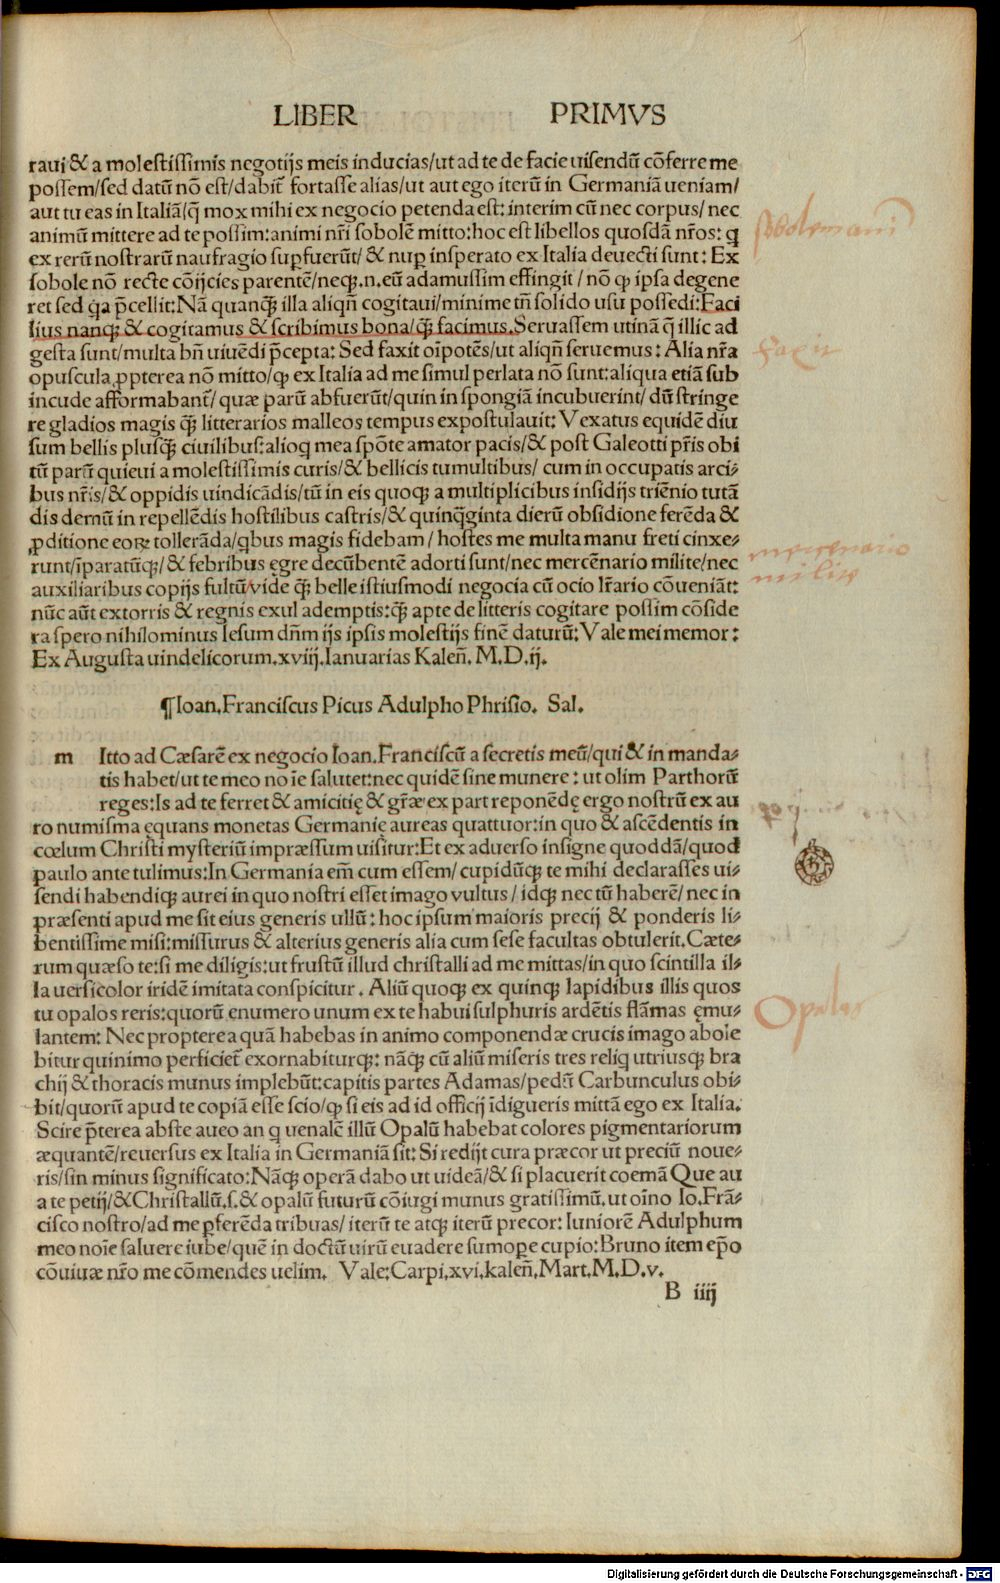 LIBER PRIMVS
raui & a molestissimis negotijs meis inducias/ut ad te de facie uisendū cōferre me
possem/sed datū nō est/dabit̄ fortasse alias/ut aut ego iterū in Germaniā ueniam/
aut tu eas in Italiā/q̄ mox mihi ex negocio petenda est: interim cū nec corpus/ nec
animū mittere ad te possim: animi nr̄i sobolē mitto: hoc est libellos quosdā nr̄os: q
ex rerū nostrarū naufragio suꝑfuerūt/ & nuꝑ insperato ex Italia deuecti sunt: Ex
sobole nō recte cōijcies parentē/neqꝫ.n.eū adamussim effingit / nō ꝙ ipsa degene
ret sed qa p̄cellit: Nā quanqꝫ illa aliqn̄ cogitaui/minime tn̄ solido usu possedi: Faci
lius nanqꝫ & cogitamus & scribimus bona/q̄ꝫ facimus. Seruassem utinā q̄ illic ad
gesta sunt/multa bn̄ uiuēdi p̄cepta: Sed faxit oīpotēs/ut aliqn̄ seruemus: Alia nr̄a
opuscula ꝓpterea nō mitto/ꝙ ex Italia ad me simul perlata nō sunt: aliqua etiā sub
incude afformabant̄/ quæ parū abfuerūt/quin in spongiā incubuerint/ dū stringe
re gladios magis q̄ꝫ litterarios malleos tempus expostulauit: Vexatus equidē diu
sum bellis plusq̄ꝫ ciuilibus: alioq mea spōte amator pacis/& post Galeotti pr̄is obi
tū parū quieui a molestissimis curis/& bellicis tumultibus/ cum in occupatis arci-
bus nr̄is/& oppidis uindicādis/tū in eis quoqꝫ a multiplicibus insidijs triēnio tutā
dis demū in repellēdis hostilibus castris/& quinq̄ginta dierū obsidione ferēda &
ꝓditione eoꝝ tollerāda/qbus magis fidebam/ hostes me multa manu freti cinxe-
runt/īparatūqꝫ/& febribus ęgre decūbentē adorti sunt/nec mercēnario milite/nec
auxiliaribus copijs fultū/uide q̄ꝫ belle istiusmodi negocia cū ocio lr̄ario cōueniāt:
nūc aūt extorris & regnis exul ademptis: q̄ꝫ apte de litteris cogitare possim cōside
ra spero nihilominus Iesum dn̄m ijs ipsis molestijs finē daturū: Vale mei memor:
Ex Augusta uindelicorum.xviij.Ianuarias Kaleñ. M.D.ij.
¶Ioan.Franciscus Picus Adulpho Phrisio. Sal.
m Itto ad Cæsarē ex negocio Ioan.Franciscū a secretis meū/qui & in manda-
tis habet/ut te meo noīe salutet: nec quidē sine munere: ut olim Parthorū
reges: Is ad te ferret & amicitię & gr̄æ ex part reponēdę ergo nostrū ex au
ro numisma ęquans monetas Germanię aureas quattuor: in quo & ascēdentis in
cœlum Christi mysteriū impræssum uisitur: Et ex aduerso insigne quoddā/quod
paulo ante tulimus: In Germania em̄ cum essem/ cupidūqꝫ te mihi declarasses ui-
sendi habendiqꝫ aurei in quo nostri esset imago vultus/ idqꝫ nec tū haberē/ nec in
præsenti apud me sit eius generis ullū: hoc ipsum maioris precij & ponderis li-
bentissime misi: missurus & alterius generis alia cum sese facultas obtulerit. Cæte-
rum quæso te: si me diligis: ut frustū illud christalli ad me mittas/in quo scintilla il-
la uersicolor iridē imitata conspicitur. Aliū quoqꝫ ex quinqꝫ lapidibus illis quos
tu opalos reris: quorū enumero unum ex te habui sulphuris ardētis flāmas ęmu-
lantem: Nec propterea quā habebas in animo componendæ crucis imago abole
bitur quinimo perficiet̄ exornabiturqꝫ: nāqꝫ cū aliū miseris tres reliq utriusqꝫ bra
chij & thoracis munus implebūt: capitis partes Adamas/pedū Carbunculus obi-
bit/quorū apud te copiā esse scio/ꝙ si eis ad id officij īdigueris mittā ego ex Italia.
Scire p̄terea abste aueo an q uenalē illū Opalū habebat colores pigmentariorum
æquantē/reuersus ex Italia in Germaniā sit: Si redijt cura præcor ut preciū noue-
ris/sin minus significato: Nāqꝫ operā dabo ut uideā/& si placuerit coemā Que au
a te petij/&Christallū.s.& opalū futurū cōiugi munus gratissimū,ut oīno Io.Frā-
cisco nostro/ad me ꝑferēda tribuas/ iterū te atqꝫ iterū precor: Iuniorē Adulphum
meo noīe saluere iube/quē in doctū uirū euadere sumoꝑe cupio: Bruno item ep̄o
cōuiuæ nr̄o me cōmendes uelim. Vale: Carpi.xvi.kaleñ.Mart.M.D.v.
B iiij
faxit
mercenario
milite
Opalus
Digitalisierung gefördert durch die Deutsche Forschungsgemeinschaft - DFG